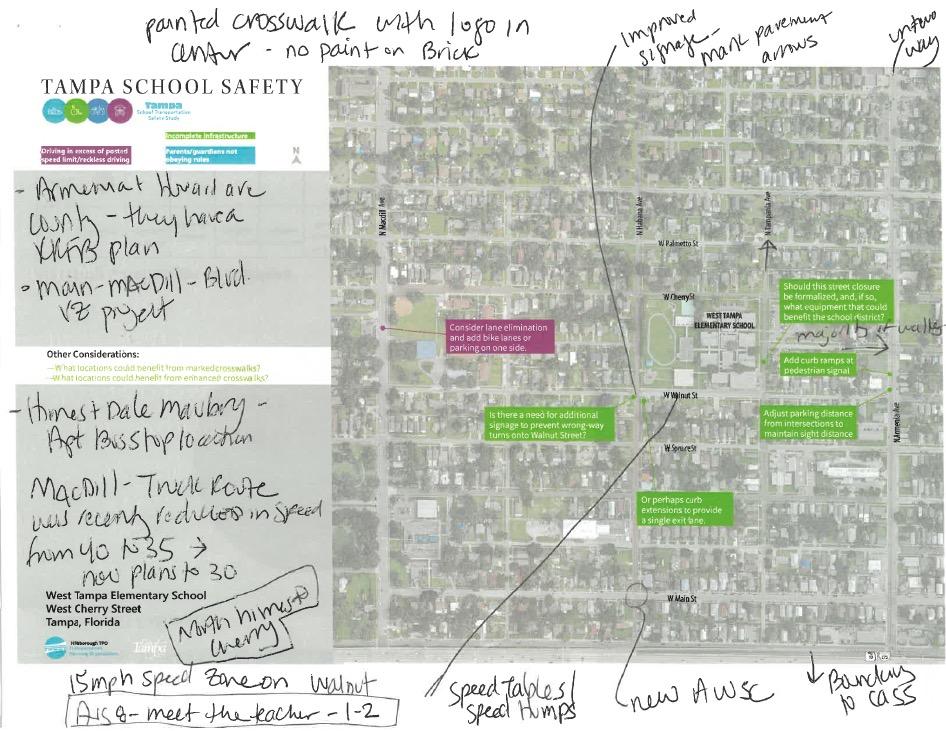 painted crosswalk with logo in
center - no paint on Brick
Improved
signage -
mark pavement
arrows
way
TAMPA SCHOOL SAFETY
Tampa
School Transportation
Safety Study
Incomplete infrastructure
Driving in excess of posted
speed limit/reckless driving
Parents/guardians not
obeying rules
N
- Armenia + Howard are
County - they have a
RRFB plan
Main - MacDill - Blvd.
VZ project
Other Considerations:
—What locations could benefit from marked crosswalks?
—What locations could benefit from enhanced crosswalks?
- Himes + Dale Mabry -
Apt Bus stop location
MacDill - Truck Route
was recently reduced in speed
from 40 to 35 →
now plans to 30
West Tampa Elementary School
West Cherry Street
Tampa, Florida
North Himes +
Cherry
Hillsborough TPO
Transportation
Planning Organization
Tampa
N Macdill Ave
N Habana Ave
N Tampania Ave
W Palmetto St
W Cherry St
WEST TAMPA
ELEMENTARY SCHOOL
Should this street closure
be formalized, and, if so,
what equipment that could
benefit the school district?
majority of walkers
Consider lane elimination
and add bike lanes or
parking on one side.
Add curb ramps at
pedestrian signal
W Walnut St
Is there a need for additional
signage to prevent wrong-way
turns onto Walnut Street?
Adjust parking distance
from intersections to
maintain sight distance
N Armenia Ave
W Spruce St
Or perhaps curb
extensions to provide
a single exit lane.
W Main St
15mph speed zone on Walnut
Aug 8 - meet the teacher - 1-2
speed tables/
speed humps
new AWSC
↓ Boundary
to Cass